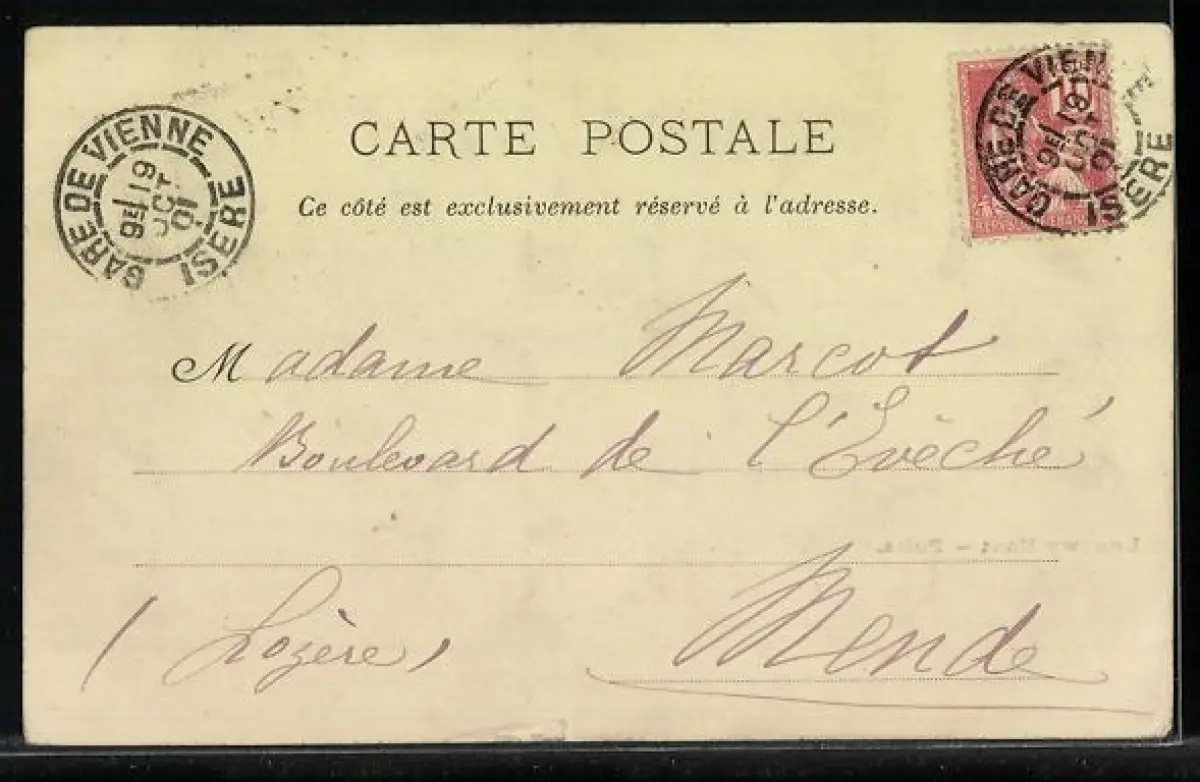 CARTE POSTALE
Ce côté est exclusivement réservé à l'adresse.
GARE DE VIENNE
9E 19
OCT
01
ISERE
GARE DE VIENNE
9E 19
OCT
01
ISERE
10
Madame Marcot
Boulevard de l'Evèché
Mende
(Lozère)